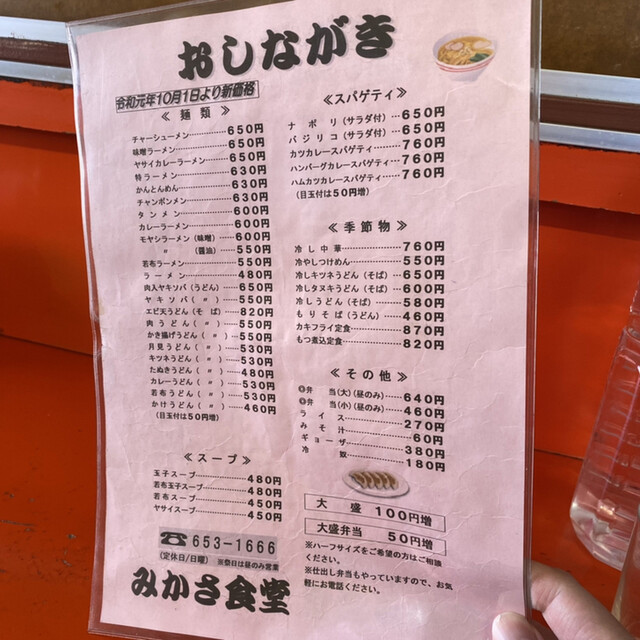 おしながき
令和元年10月1日より新価格
≪麺類≫
チャーシューメン…………650円
味噌ラーメン…………650円
ヤサイカレーラーメン…………650円
特ラーメン…………630円
かんとんめん…………630円
チャンポンメン…………630円
タンメン…………600円
カレーラーメン…………600円
モヤシラーメン（味噌）…………600円
〃（醤油）…………550円
若布ラーメン…………550円
ラーメン…………480円
肉入ヤキソバ（うどん）…………650円
ヤキソバ（〃）…………550円
エビ天うどん（そば）…………820円
肉うどん（〃）…………550円
かき揚げうどん（〃）…………550円
月見うどん（〃）…………530円
キツネうどん（〃）…………530円
たぬきうどん（〃）…………480円
カレーうどん（〃）…………530円
若布うどん（〃）…………530円
かけうどん（〃）…………460円
（目玉付は50円増）
≪スープ≫
玉子スープ…………480円
若布玉子スープ…………480円
若布スープ…………450円
ヤサイスープ…………450円
☎653-1666
（定休日/日曜）※祭日は昼のみ営業
みかさ食堂
≪スパゲティ≫
ナポリ（サラダ付）…650円
バジリコ（サラダ付）…650円
カツカレースパゲティ…………760円
ハンバーグカレースパゲティ…760円
ハムカツカレースパゲティ……760円
（目玉付は50円増）
≪季節物≫
冷し中華…………760円
冷やしつけめん…………550円
冷しキツネうどん（そば）…600円
冷しタヌキうどん（そば）…600円
冷しうどん（そば）…………580円
もりそば（うどん）…………460円
カキフライ定食…………870円
もつ煮込定食…………820円
≪その他≫
弁当（大）（昼のみ）…………640円
弁当（小）（昼のみ）…………460円
ライス…………270円
みそ汁…………60円
ギョーザ…………380円
冷奴…………180円
大盛 100円増
大盛弁当 50円増
※ハーフサイズをご希望の方はご相談
ください。
※仕出し弁当もやっていますので、お気
軽にお電話ください。